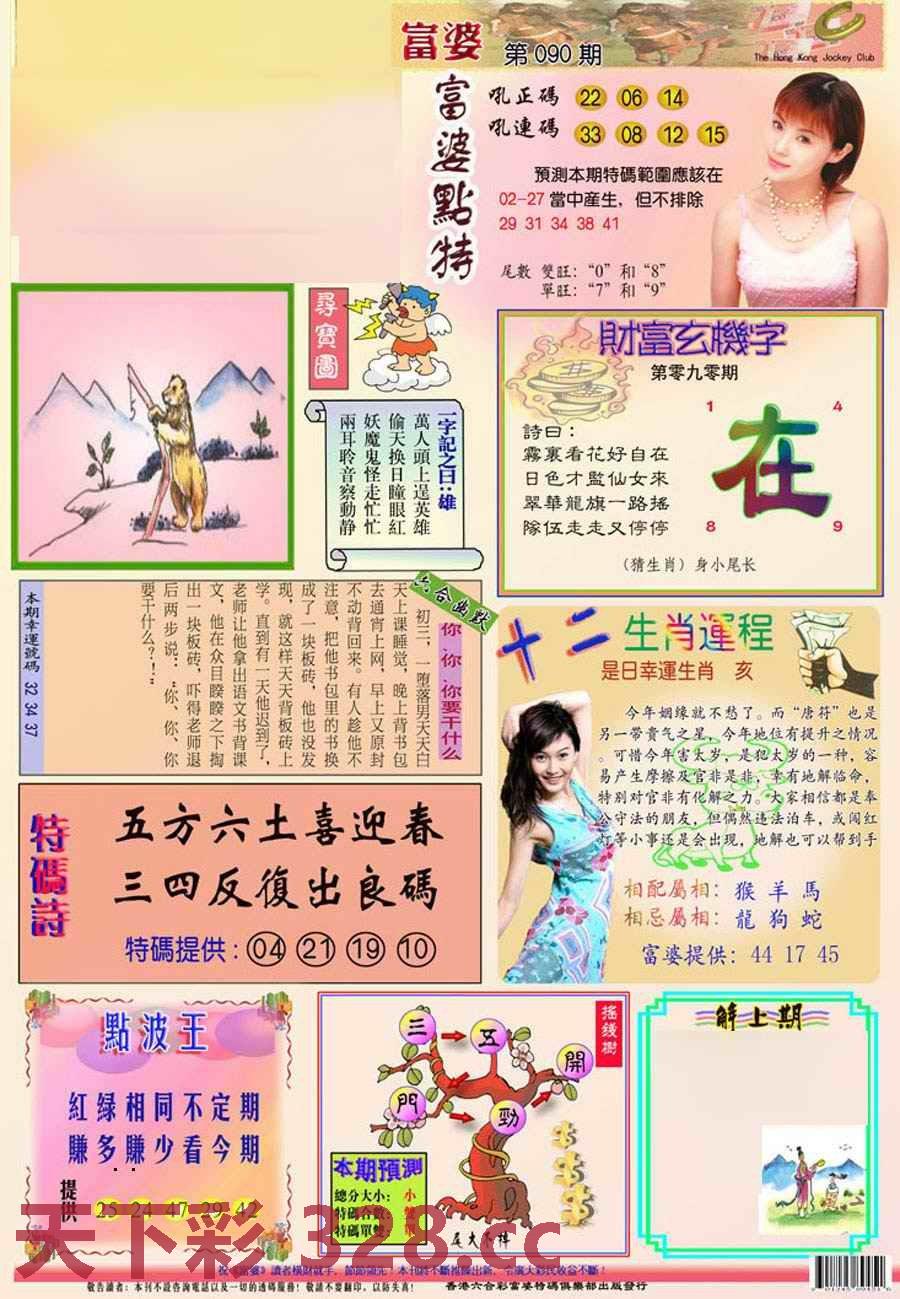 富婆 第090期
The Hong Kong Jockey Club
富婆點特
吼正碼 22 06 14
吼連碼 33 08 12 15
預測本期特碼範圍應該在
02-27 當中産生, 但不排除
29 31 34 38 41
尾數 雙旺: “0” 和 “8”
單旺: “7” 和 “9”
尋寶圖
一字記之曰:雄
萬人頭上逞英雄
偷天換日瞳眼紅
妖魔鬼怪走忙忙
兩耳聆音察動静
財富玄機字
第零九零期
詩曰:
霧裏看花好自在
日色才監仙女來
翠華龍旗一路搖
隊伍走走又停停
1 4
在
8 9
(猜生肖) 身小尾长
六合幽默
你、你、你要干什么
初三，一堕落男天天白
天上课睡觉，晚上背书包
去通宵上网，早上又原封
不动背回来。有人趁他不
注意，把他书包里的书换
成了一块板砖，他也没发
现，就这样天天背板砖上
学。直到有一天他迟到了，
老师让他拿出语文书背课
文，他在众目睽睽之下掏
出一块板砖，吓得老师退
后两步说：“你、你、你
要干什么？！”
本期幸運號碼 32 34 37
十二生肖運程
是日幸運生肖 亥
今年姻缘就不愁了。而“唐符”也是
另一带贵气之星，今年地位有提升之情况
。可惜今年害太岁，是犯太岁的一种，容
易产生摩擦及官非是非，幸有地解临命，
特别对官非有化解之力。大家相信都是奉
公守法的朋友，但偶然违法泊车，或闯红
灯等小事还是会出现，地解也可以帮到手
相配屬相: 猴 羊 馬
相忌屬相: 龍 狗 蛇
富婆提供: 44 17 45
特碼詩
五方六土喜迎春
三四反復出良碼
特碼提供: 04 21 19 10
點波王
紅绿相同不定期
賺多賺少看今期
提供 25 24 47 29 42
搖錢樹
三 五 開
門 勁
本期預測
總分大小: 小
特碼合數: 雙
特碼單雙: 單
尾大不掉
解上期
天下彩 328.cc
祝《富婆》讀者橫財就手，節節領先！本刊將不斷推陳出新，令廣大彩民收益不斷！
敬告讀者: 本刊不設咨詢電話以及一切的透碼服務! 敬請不要翻印，以防失真!
香港六合彩富婆特碼俱樂部出版發行